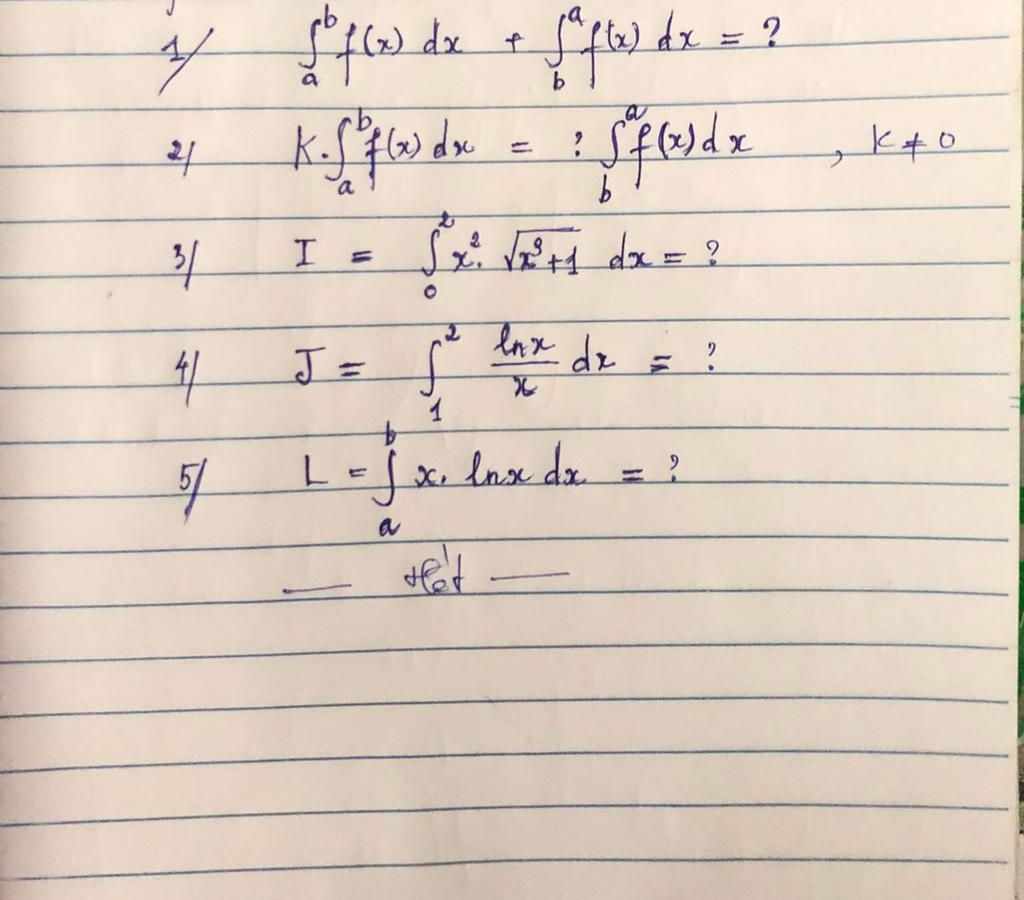 1/ ∫_a^b f(x) dx + ∫_b^a f(x) dx = ?
2/ K.∫_a^b f(x) dx = ? ∫_b^a f(x) dx , K ≠ 0
3/ I = ∫_0^2 x². √(x³+1) dx = ?
4/ J = ∫_1^2 lnx/x dx = ?
5/ L = ∫_a^b x. lnx dx = ?
— Hết —